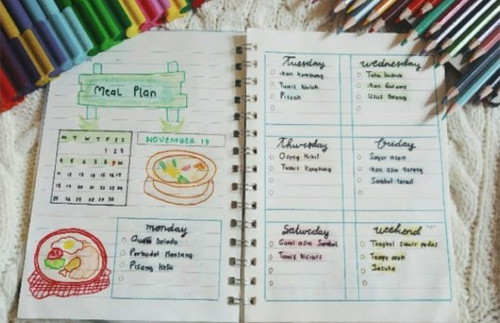 Meal Plan
M T W T F S S
1 2 3
4 5 6 7 8 9 10
11 12 13 14 15 16 17
18 19 20 21 22 23 24
25 26 27 28 29 30
NOVEMBER 19
monday
balado
Perkedel Kentang
Pisang Keju
Tuesday
ikan kembung
Tumis
Piscok
wednesday
Tahu
ikan
Usus Goreng
Thursday
Oseng Kikil
Tumis Kangkung
friday
Sayur Asem
ikan asin goreng
Sambal terasi
Saturday
Gulai
Tumis
weekend
Tongkol suwir pedas
Tempe orek
Jasuke